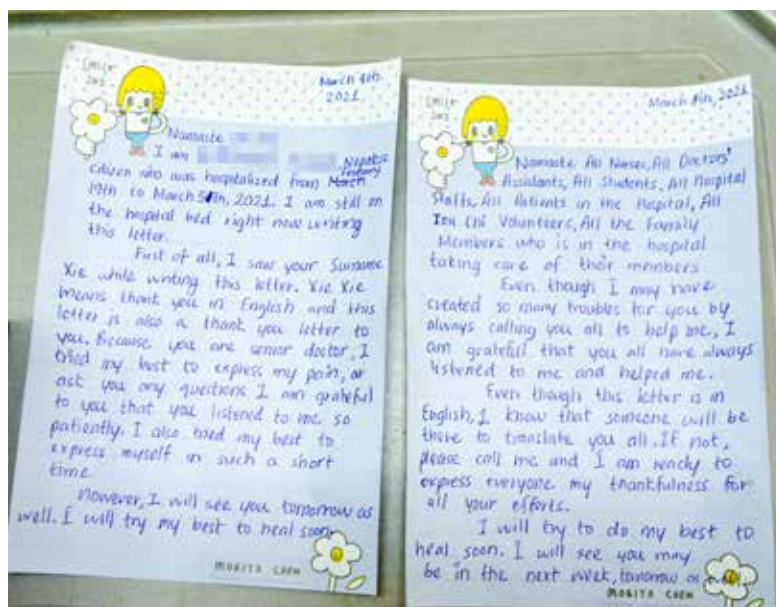 SMILE
March 4th,
2021
Namaste
I am
Nepalese
citizen who was hospitalized from March February
19th to March 5th, 2021. I am still on
the hospital bed right now writing
this letter.
First of all, I saw your Surname
Xie while writing this letter. Xie Xie
means thank you in English and this
letter is also a thank you letter to
you. Because you are senior doctor, I
tried my best to express my pain, or
ask you any questions. I am grateful
to you that you listened to me so
patiently. I also tried my best to
express myself in such a short
time.
However, I will see you tomorrow as
well. I will try my best to heal soon.
MORITA CHEN
SMILE
March 4th, 2021
Namaste All Nurses, All Doctors'
Assistants, All Students, All Hospital
Staffs, All Patients in the Hospital, All
Tzu Chi Volunteers, All the Family
Members who is in the hospital
taking care of their members.
Even though I may have
created so many troubles for you by
always calling you all to help me, I
am grateful that you all have always
listened to me and helped me.
Even though this letter is in
English, I know that someone will be
there to translate you all. If not,
please call me and I am ready to
express everyone my thankfulness for
all your efforts.
I will try to do my best to
heal soon. I will see you may
be in the next week, tomorrow as
MORITA CHEN